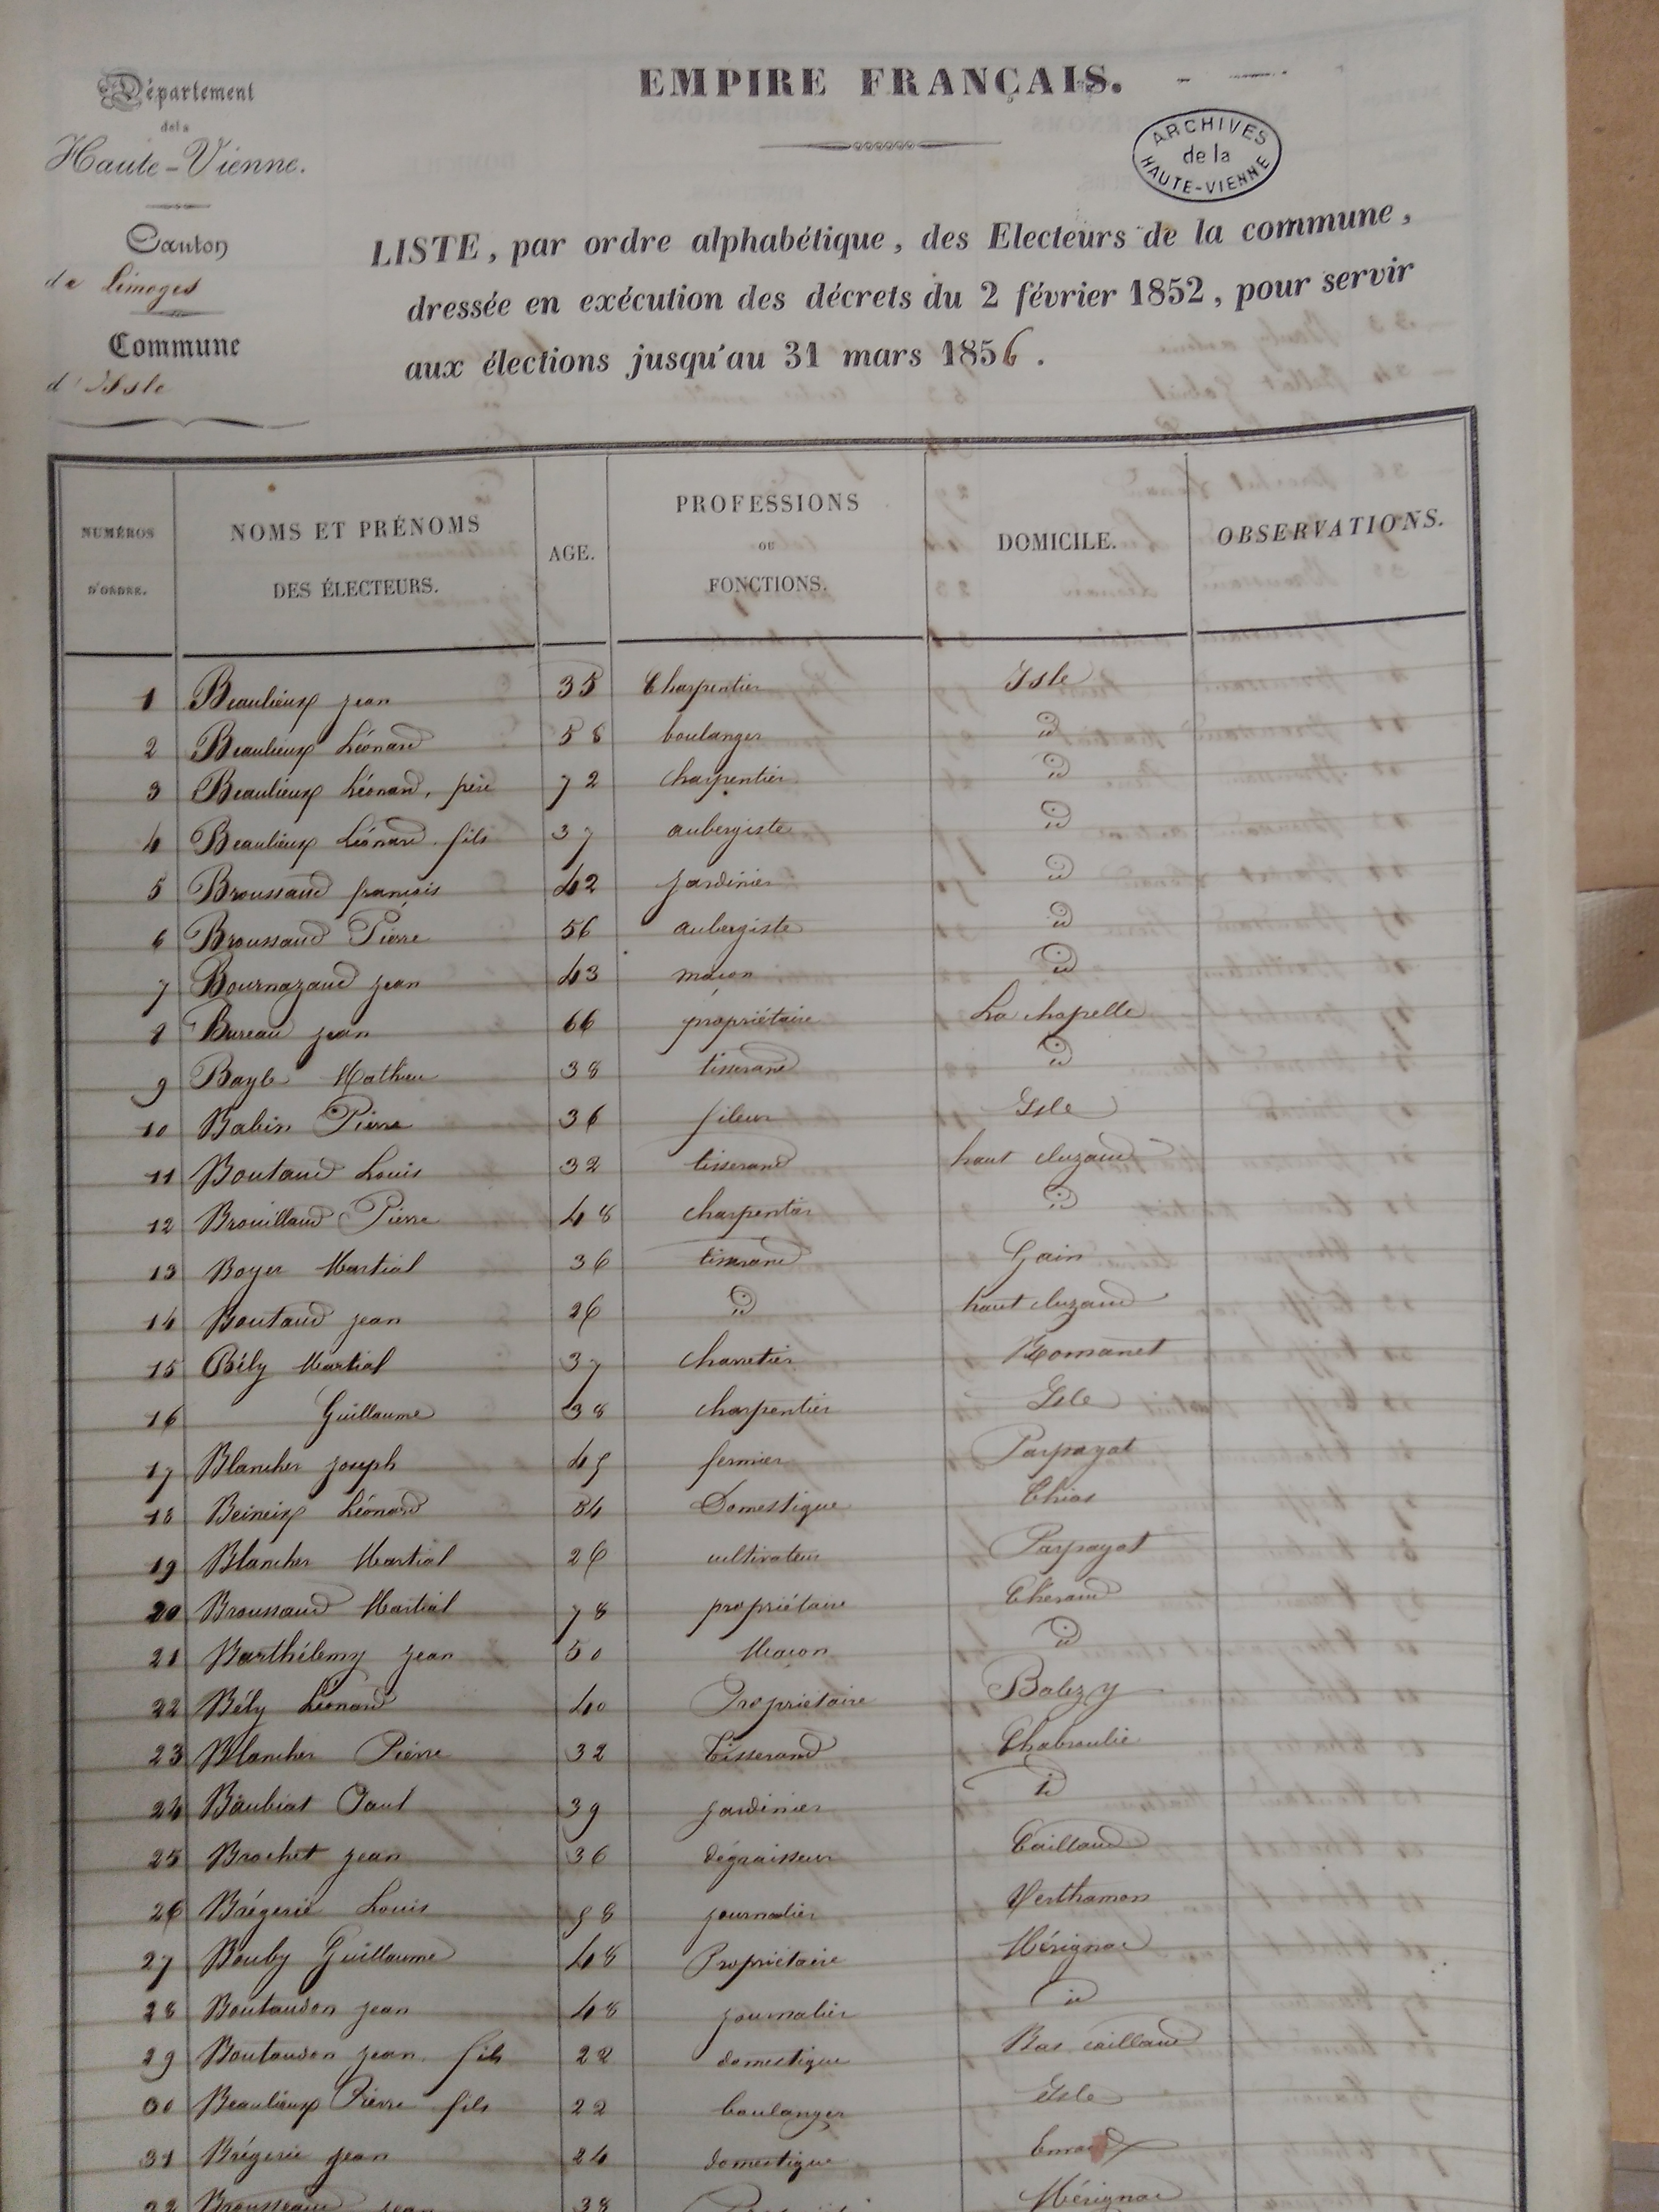 EMPIRE FRANÇAIS.
Département
de la
Haute-Vienne.
ARCHIVES
de la
HAUTE-VIENNE
Canton
de Limoges
Commune
d'Isle
LISTE, par ordre alphabétique, des Electeurs de la commune,
dressée en exécution des décrets du 2 février 1852, pour servir
aux élections jusqu'au 31 mars 1856.
NUMÉROS D'ORDRE. NOMS ET PRÉNOMS DES ÉLECTEURS. AGE. PROFESSIONS OU FONCTIONS. DOMICILE. OBSERVATIONS.
1 Beaulieux jean 35 Charpentier Isle
2 Beaulieux Léonard 58 boulanger id
3 Beaulieux Léonard, père 72 charpentier id
4 Beaulieux Léonard fils 37 aubergiste id
5 Broussaud françois 42 jardinier id
6 Broussaud Pierre 56 aubergiste id
7 Bournazaud jean 43 maçon id
8 Bureau jean 66 propriétaire La chapelle
9 Bayle Mathieu 38 tisserand id
10 Babin Pierre 36 fileur Isle
11 Boutaud Louis 32 tisserand haut cluzaud
12 Brouillaud Pierre 48 charpentier id
13 Boyer Martial 36 tisserand Gain
14 Boutaud jean 26 id haut cluzaud
15 Bély Martial 37 charretier Romanet
16 Guillaume 38 charpentier Isle
17 Blancher joseph 45 fermier Parpayat
18 Beineix Léonard 34 Domestique Chias
19 Blancher Martial 26 cultivateur Parpayat
20 Broussaud Martial 78 propriétaire Theraud
21 Barthélemy jean 50 Maçon id
22 Bély Léonard 40 Propriétaire Balezy
23 Blancher Pierre 32 Tisserand Chabroulie
24 Baubiat Paul 39 jardinier id
25 Brochet jean 36 dégraisseur Caillaud
26 Brégerie Louis 58 journalier Verthamon
27 Bouby Guillaume 48 Propriétaire Mérignac
28 Boutaudon jean 48 journalier id
29 Boutaudon jean fils 22 domestique Bas caillaud
30 Beaulieux Pierre fils 22 boulanger Isle
31 Brégerie jean 24 domestique
32 Brousseaud jean 38 Mérignac